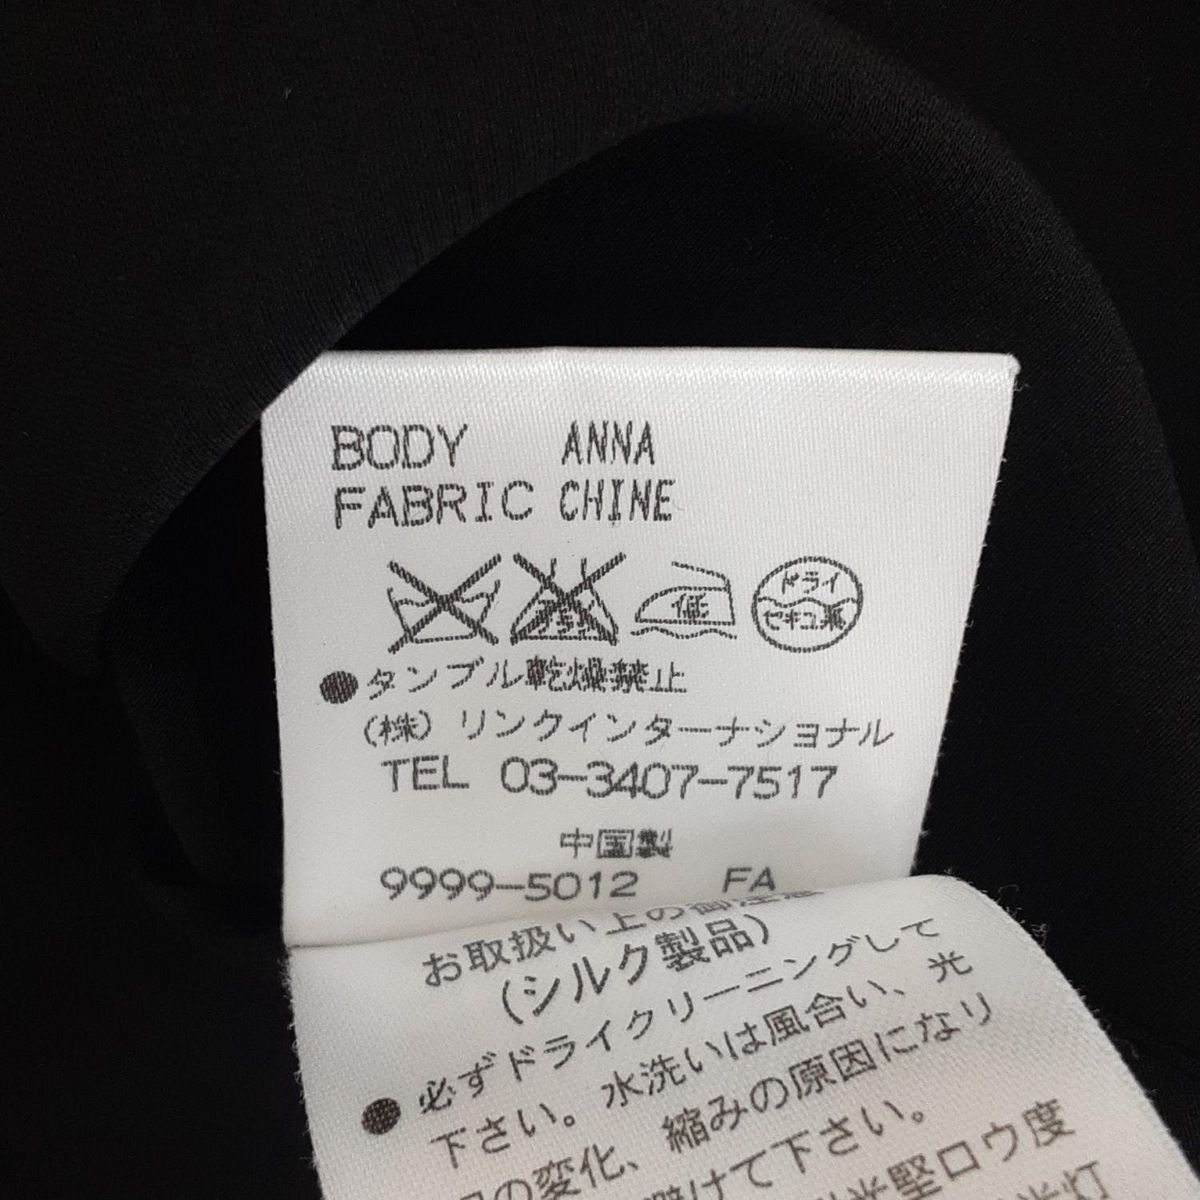 BODY ANNA
FABRIC CHINE
低
ドライ
セキユ系
●タンブル乾燥禁止
(株) リンクインターナショナル
TEL 03-3407-7517
中国製
9999-5012 FA
お取扱い上の御注意
(シルク製品)
● 必ずドライクリーニングして
下さい。水洗いは風合い、光
の変化、縮みの原因になり
避けて下さい。
光堅ロウ度
光灯